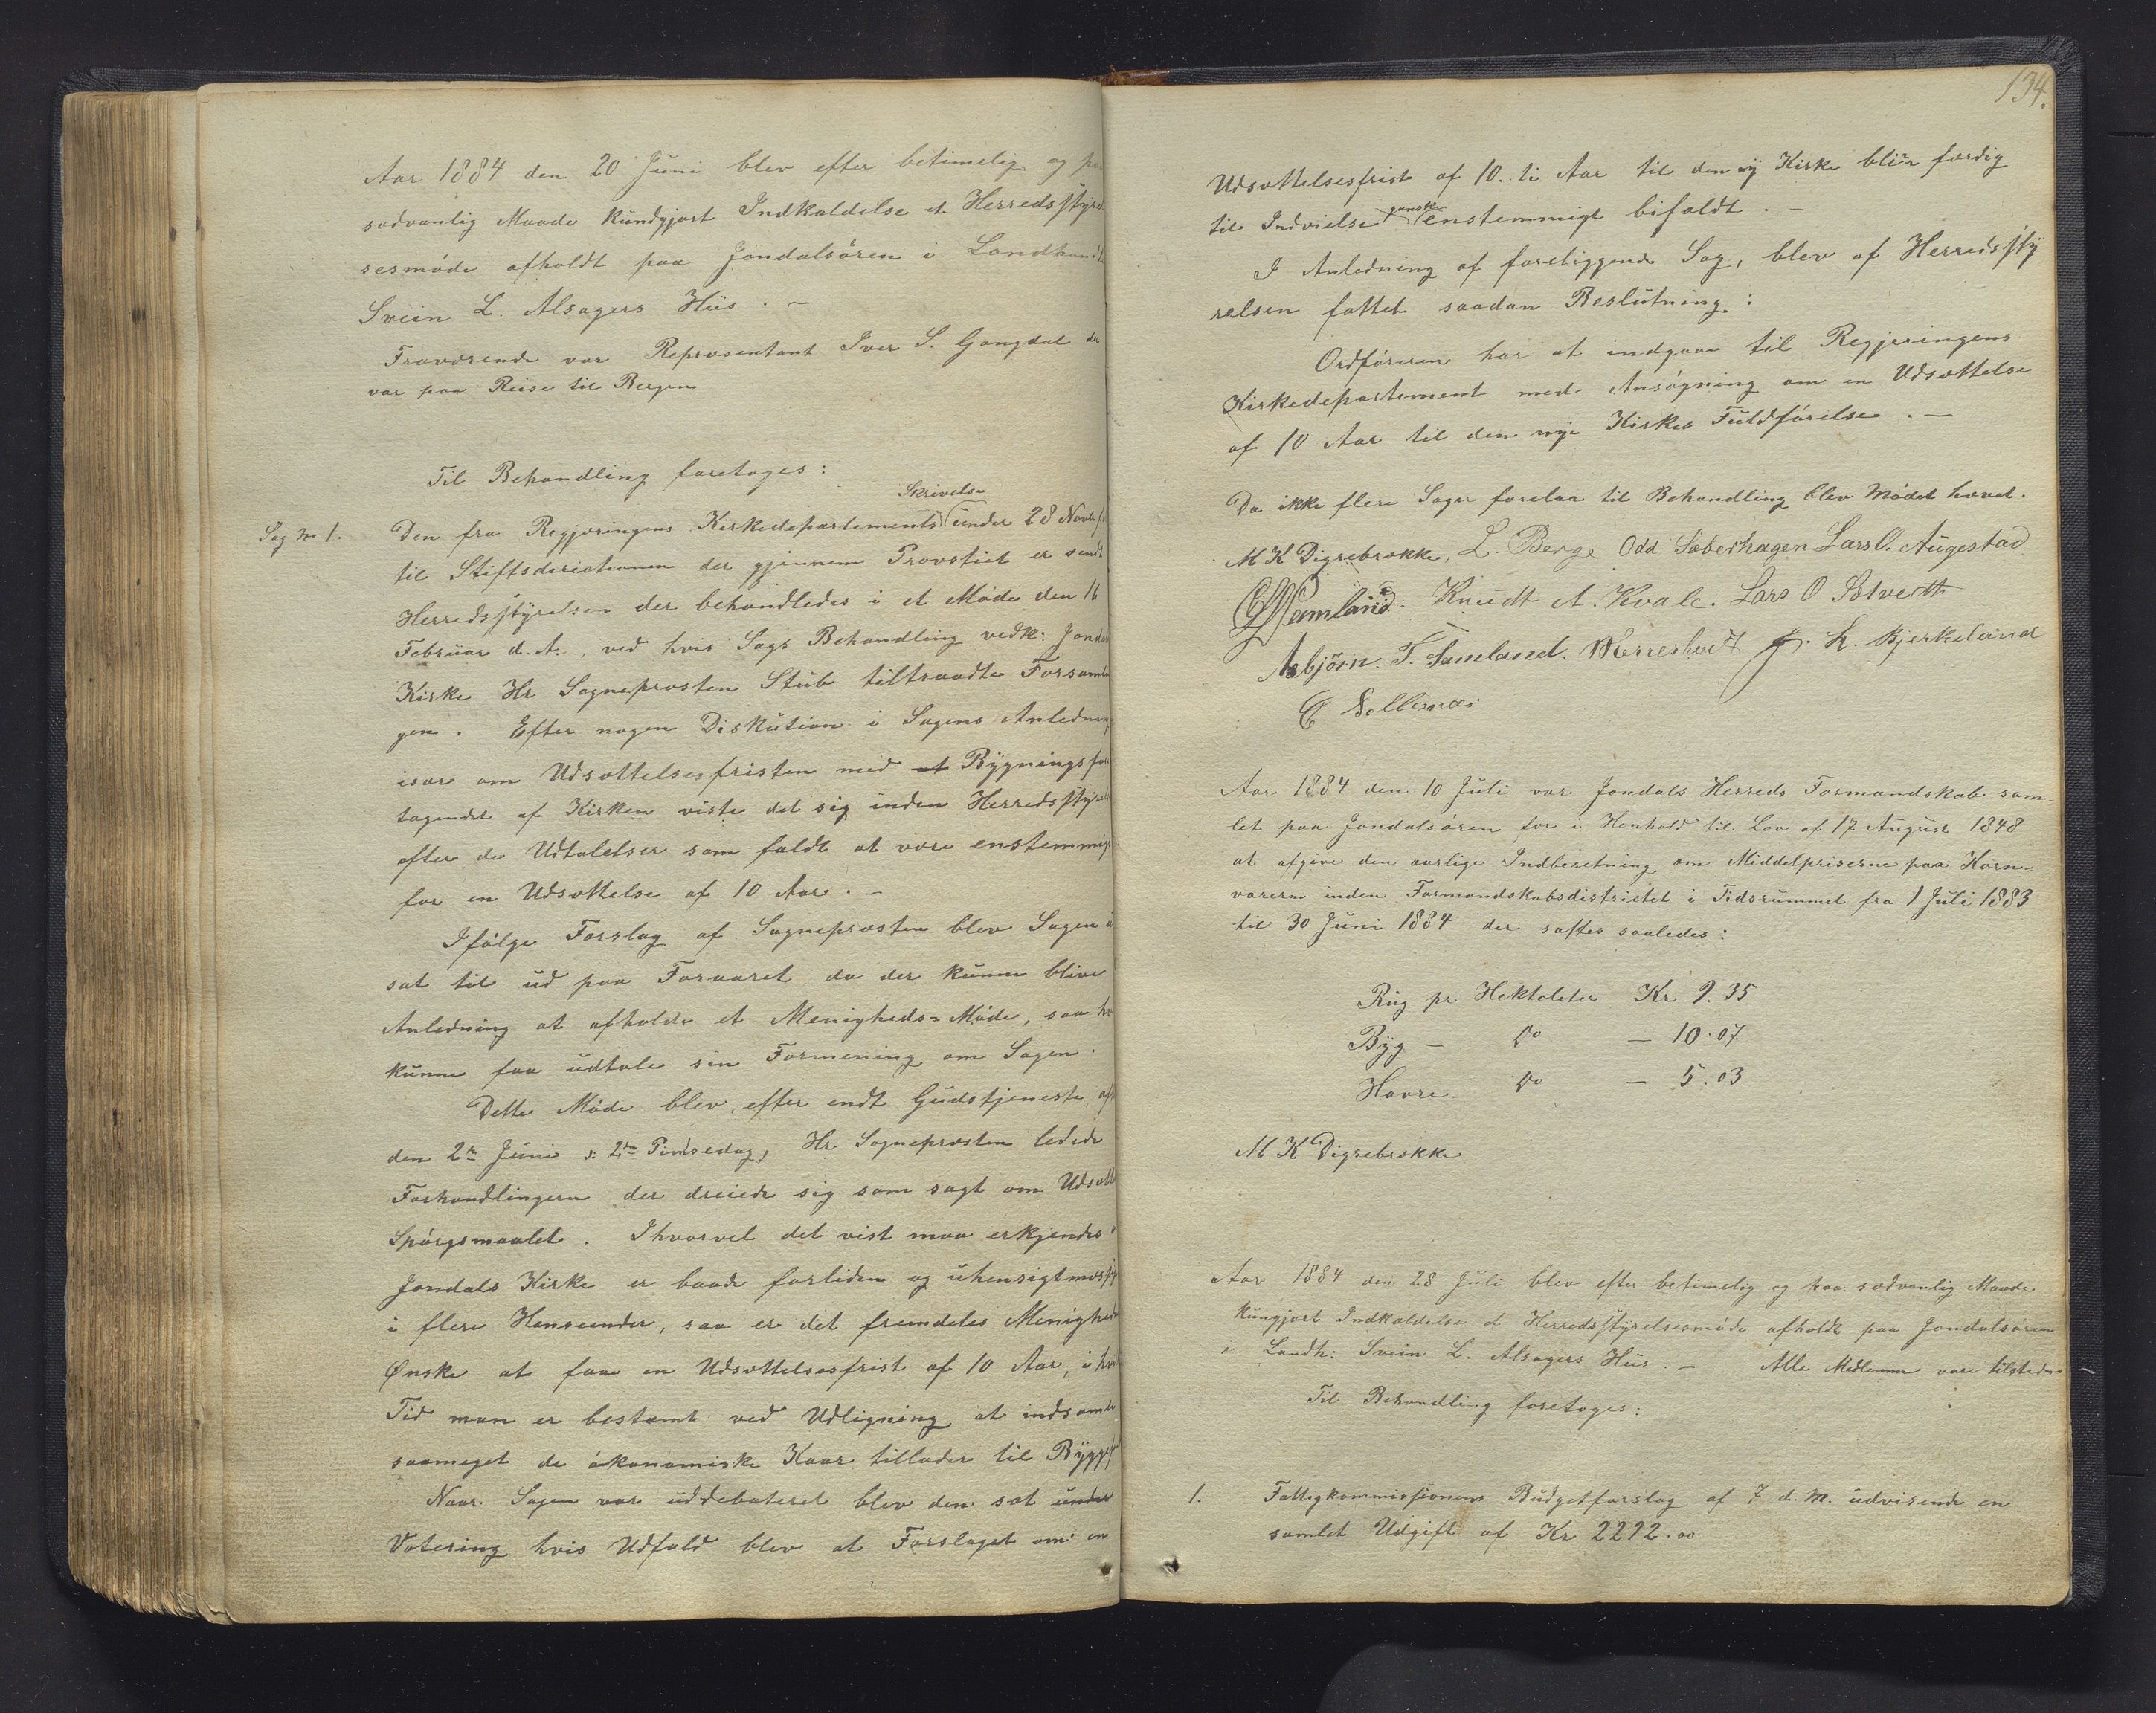 Aar 1884 den 20 Juni blev efter betimelig og paa
sædvanlig Maade kundgjort Indkaldelse et Herredsstyrel
sesmöde afholdt paa Jondalsören i Landhandl
Svein L. Alsagers Hus. –
Fraværende var Repræsentant Iver S. Gangdal der
var paa Reise til Bergen
Til Behandling foretages:
Skrivelse
Sag No 1. Den fra Regjeringens Kirkedepartements under 28 Novbr
til Stiftsderictionen der gjennem Provstiet er sendt
Herredsstyrelsen der behandledes i et Möde den 16
Februar d. A., ved hvis Sags Behandling vedk: Jondals
Kirke Hr Sognepræsten Stub tiltraadte Forsamlin
gen. Efter nogen Diskution i Sagens Anledning
især om Udsættelsesfristen med at Bygningsfore
tagendet af Kirken viste det sig inden Herredsstyrel
efter de Udtalelser som faldt at være enstemmig
for en Udsættelse af 10 Aar. –
Ifölge Forslag af Sognepræsten blev Sagen
sat til ud paa Foraaret da der kunne blive
Anledning at afholde et Menigheds=Möde, saa
kunne faa udtale sin Formening om Sagen.
Dette Möde blev, efter endt Gudstjeneste, af
den 2den Juni s: 2den Pindsedag, Hr. Sognepræsten ledede
Forhandlingerne der dreiede sig som sagt om Udsætt
Spörgsmaalet. Ihvorvel det vist maa erkjendes
Jondals Kirke er baade forliden og uhensigtmæssig
i flere Henseender, saa er det fremdeles Menighedens
Ønske at faa en Udsættelsesfrist af 10 Aar, i hvil
Tid man er bestemt ved Udligning at indsamle
saameget de ökonomiske Kaar tillader til Bygge
Naar Sagen var uddebateret blev den sat under
Votering hvis Udfald blev at Forslaget om en
134.
Udsættelsesfrist af 10. ti Aar til den ny Kirke blir færdig
ganske
til Indvielse enstemmigt bifaldt. –
I Anledning af foreliggende Sag, blev af Herredssty
relsen fattet saadan Beslutning:
Ordföreren har at indgaa til Regjeringens
Kirkedepartement med Ansögning om en Udsættelse
af 10 Aar til den nye Kirkes Fuldförelse. –
Da ikke flere Sager forelaa til Behandling blev Mödet hævet.
M K Digrebrække, L. Berge Odd Sæberhagen Lars O. Augestad
Samland. Knudt A. Kvale. Lars O Solvedt
Asbjörn T. Samland. Herreskedt J. L. Bjerkeland
Aar 1884 den 10 Juli var Jondals Herreds Formandskab sam-
let paa Jondalsören for i Henhold til Lov af 17 August 1848
at afgive den aarlige Indberetning om Middelpriserne paa Korn-
varerne inden Formandskabsdistrictet i Tidsrummet fra 1 Juli 1883
til 30 Juni 1884 der sattes saaledes:
Rug pr Hektoleter Kr 9. 35
Byg – Do – 10. 07
Havre – Do – 5. 03
M K Digrebrække
Aar 1884 den 28 Juli blev efter betimelig og paa sædvanlig Maade
kungjort Indkaldelse et Herredsstyrelsesmöde afholdt paa Jondalsören
i Landh: Svein L. Alsagers Hus. – Alle Medlemmer vare tilstede
Til Behandling foretages:
1. Fattigkommissionens Budgetforslag af 7 d. M. udvisende en
samlet Udgift af Kr 2292.00